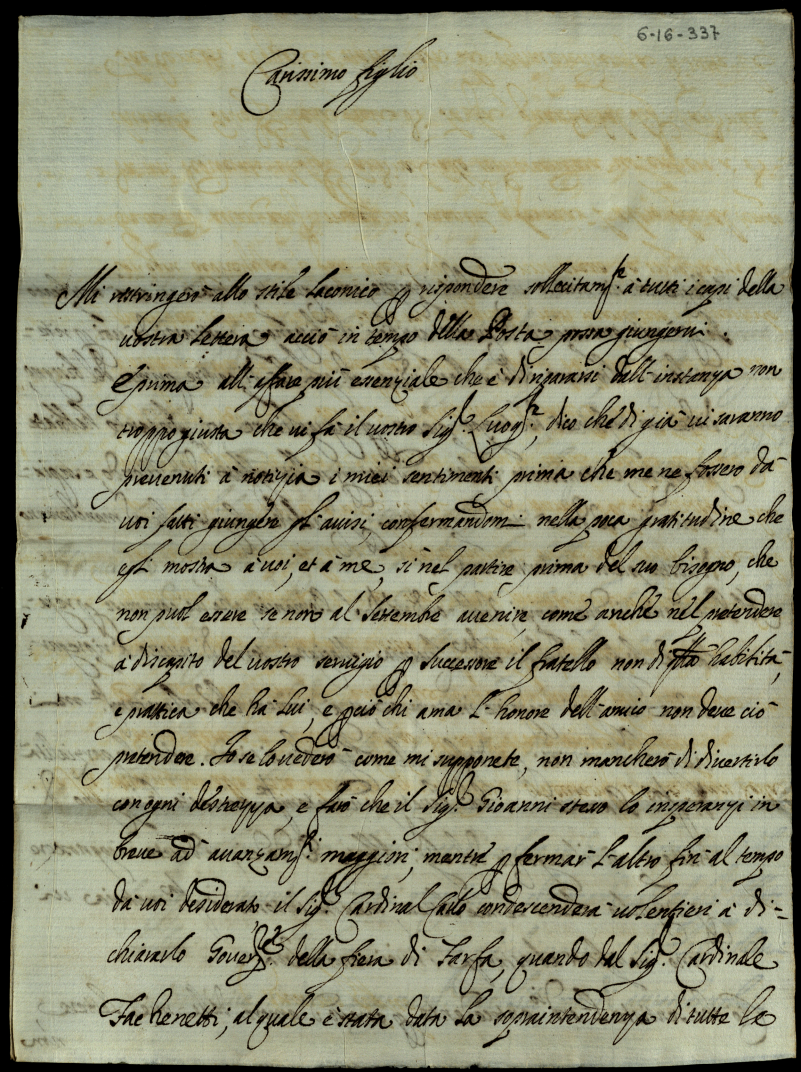 6-16-337
Carissimo figlio
Mi restringerò allo stile laconico p rispondere sollecitam.te à tutti i capi della
vostra lettera acciò in tempo della Posta possa giungervi.
E prima all'affare più essenziale che è di ripararsi dall'instanza non
troppo giusta che vi fà il vostro Sig.r Luog.te, dico che di già vi saranno
prevenuti à notizia i miei sentimenti prima che me ne fossero da
voi fatti giungere gl'avisi, confermandomi nella poca gratitudine che
egl mostra à voi, et à me, sì nel partire prima del suo bisogno, che
non puol essere se non al Settembre avenire, come anche nel pretendere
à discapito del vostro servigio p successore il fratello non di q.lla habilità,
e prattica che hà lui, e p ciò chi ama l'honore dell'amico non deve ciò
pretendere. Io se lo vederò come mi supponete, non mancherò di divertirlo
con ogni destrezza, e farò che il Sig.r Gioanni stesso lo inperanzi in
breve ad avanzam.ti maggiori, mentre p fermar l'altro fin al tempo
da voi desiderato il Sig.r Cardinal Carlo condescenderà volentieri à di-
chiararlo Gover.re della fiera di Farfa, quando dal Sig.r Cardinale
Fachenetti, al quale è stata data la sopraintendenza di tutte le